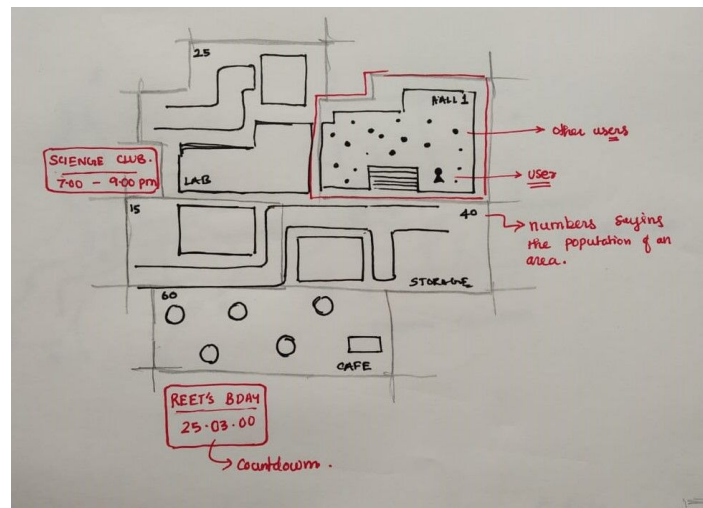 25
HALL 1
other users
SCIENCE CLUB.
7:00 - 9:00 pm
LAB
user
15
40
numbers saying
the population of an
area.
STORAGE
60
CAFE
REET'S BDAY
25.03.00
Countdown.